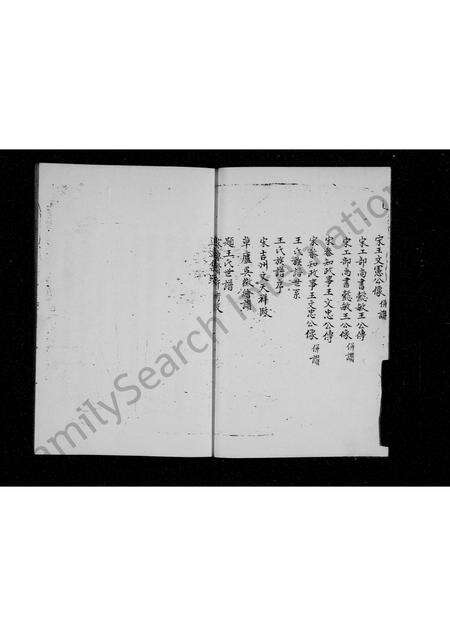 宋王文憲公像 併讚
宋工部尚書懿敏王公傳
宋工部尚書懿敏王公像 併讚
宋叅知政事王文忠公傳
宋叅知政事王文忠公像 併讚
王氏族譜世系
王氏族譜序
宋吉州文天祥跋
草廬吳
題王氏世譜
FamilySearch International